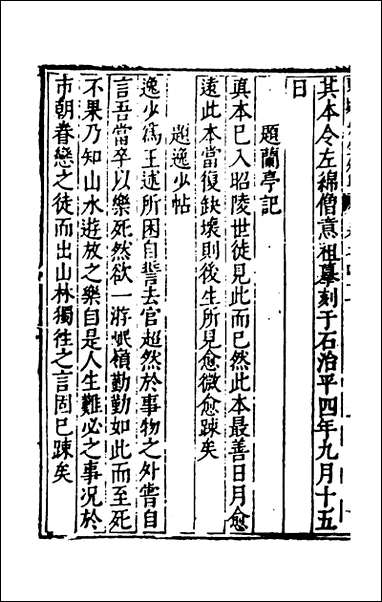 其本令左綿僧意祖摹刻于石治平四年九月十五
日
題蘭亭記
真本已入昭陵世徒見此而已然此本最善日月愈
遠此本當復缺壞則後生所見愈微愈踈矣
題逸少帖
逸少為王述所困自誓去官超然於事物之外嘗自
言吾當卒以樂死然欲一游岷嶺勤勤如此而至死
不果乃知山水遊放之樂自是人生難必之事况於
市朝眷戀之徒而出山林獨往之言固已踈矣